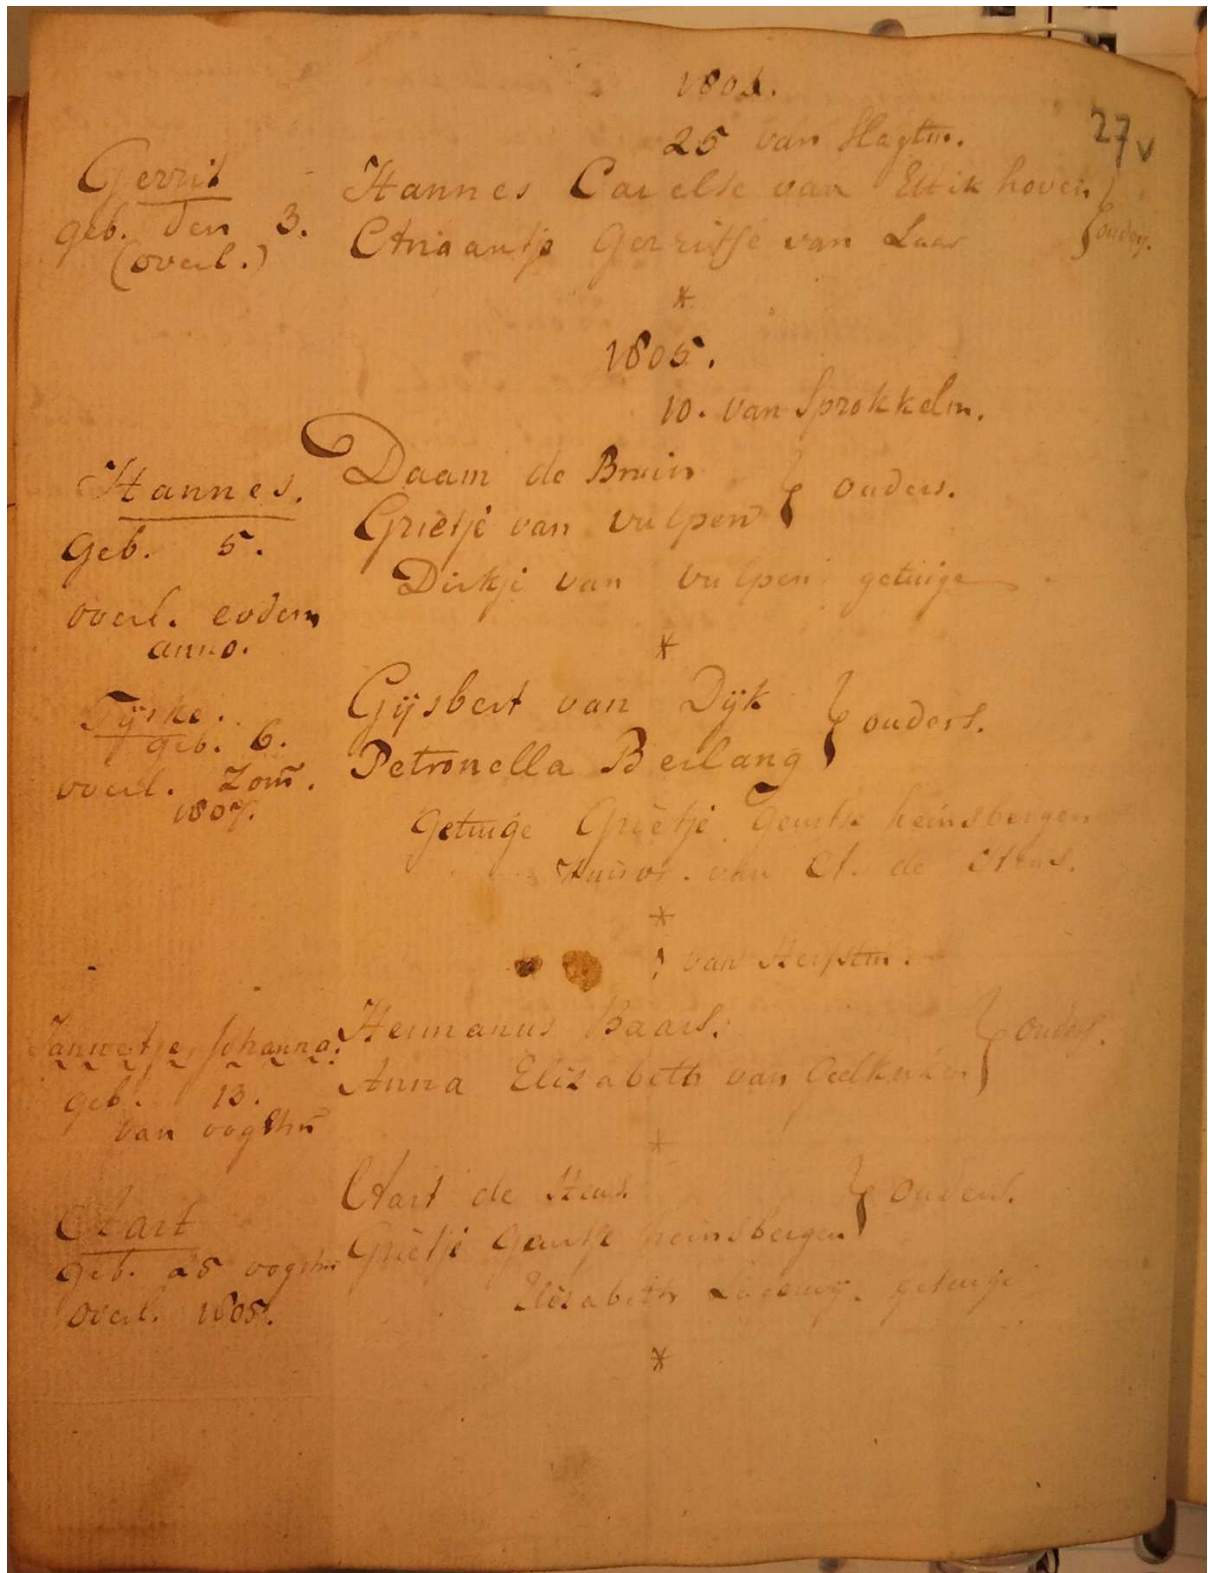 27v
25 van Slagtm.
Gerrit
geb. den 3.
(overl.)
Hannes Carelse van Ettikhoven
Ariaantje Gerritse van Laar } ouders.
*
1805.
10. van Sprokkelm.
Hannes.
geb. 5.
overl. eodem
anno.
Daam de Bruin
Grietje van Vulpen } ouders.
Dirkje van Vulpen getuige
*
geb. 6.
overl. Zom̄.
1807.
Gijsbert van Dijk
Petronella Beilang } ouders.
Getuige Grietje Geurtse heinsbergen
huisvr. van A. de Heus.
*
van Herfstm.
Jannetje, Johanna.
geb. 13.
van oogstm̄
Hermanus Baars.
Anna Elizabeth van } ouders.
*
Aart
geb. 28 oogstm̄
overl. 1805.
Aart de Heus
Grietje Geurtse heinsbergen } ouders.
Elizabeth getuige
*